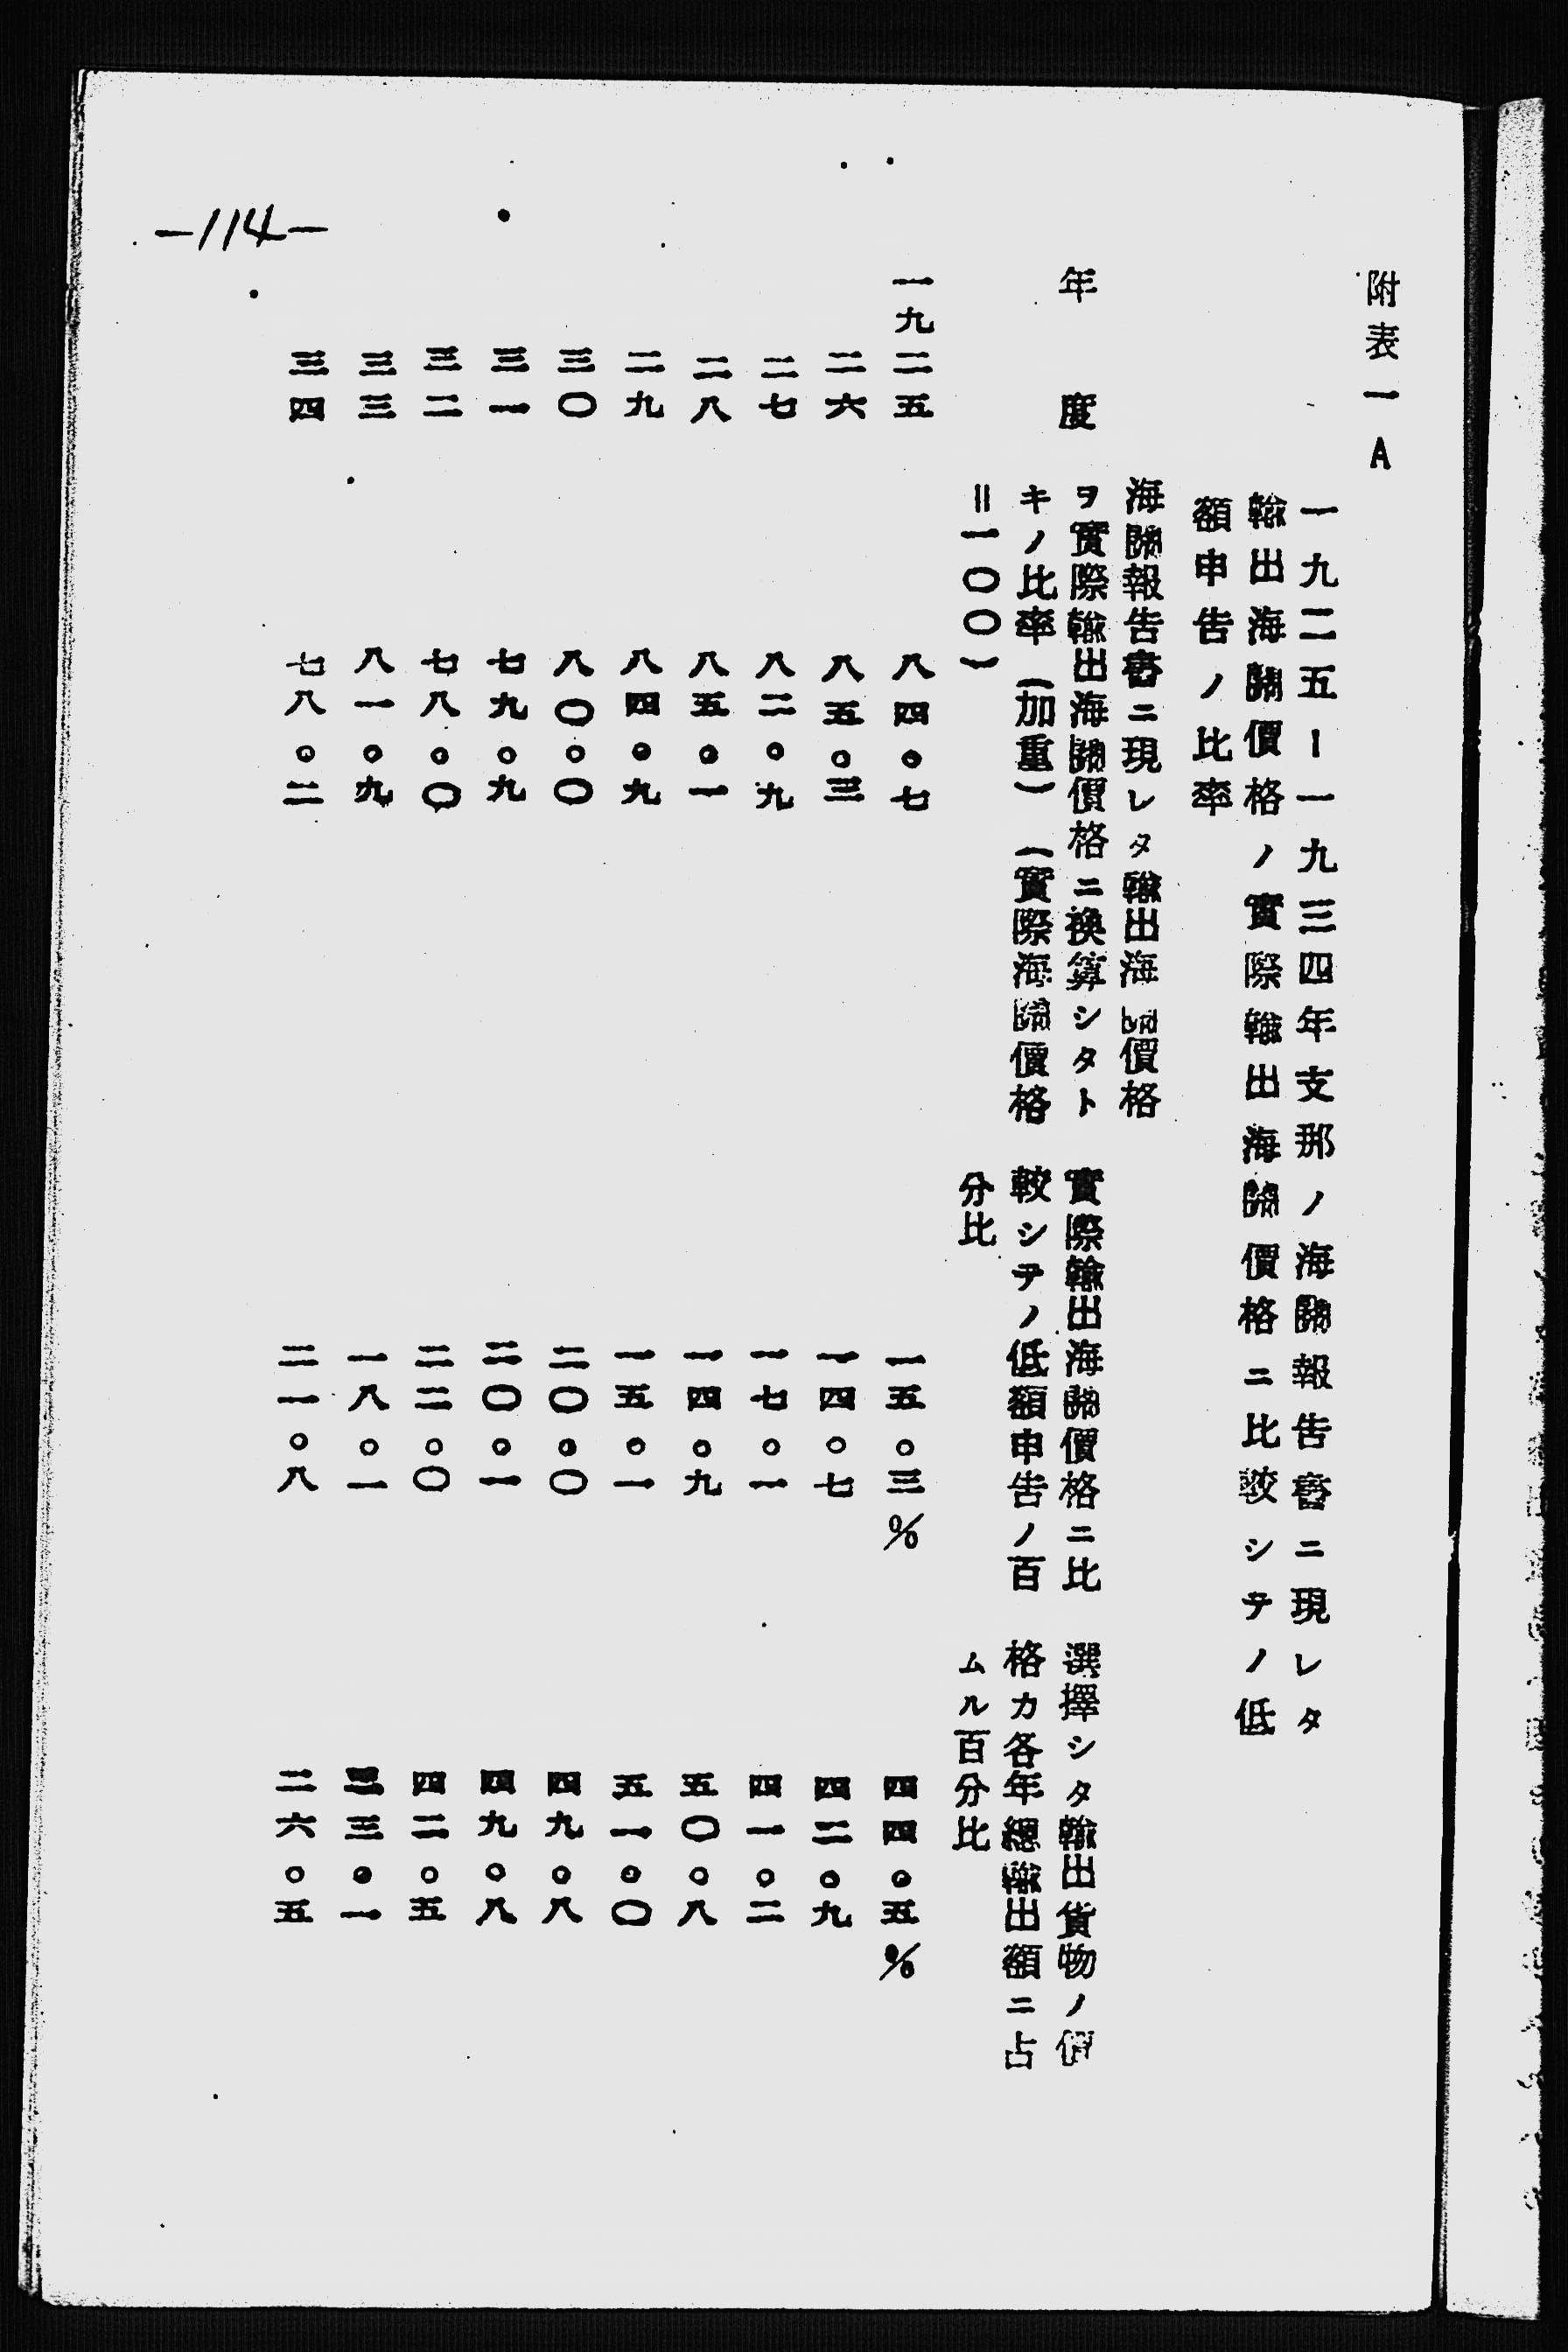 附表一A
一九二五ー一九三四年支那ノ海關報告書ニ現レタ
輸出海關價格ノ實際輸出海關價格ニ比較シテノ低
額申告ノ比率
年度
海關報告書ニ現レタ輸出海關價格
ヲ實際輸出海關價格ニ換算シタト
キノ比率(加重)(實際海關價格
=一〇〇)
實際輸出海關價格ニ比
較シテノ低額申告ノ百
分比
選擇シタ輸出貨物ノ價
格カ各年總輸出額ニ占
ムル百分比
一九二五 八四。七 一五。三% 四四。五%
二六 八五。三 一四。七 四二。九
二七 八二。九 一七。一 四一。二
二八 八五。一 一四。九 五〇。八
二九 八四。九 一五。一 五一。〇
三〇 八〇。〇 二〇。〇 四九。八
三一 七九。九 二〇。一 四九。八
三二 七八。〇 二二。〇 四二。五
三三 八一。九 一八。一 三三。一
三四 七八。二 二一。八 二六。五
—114—